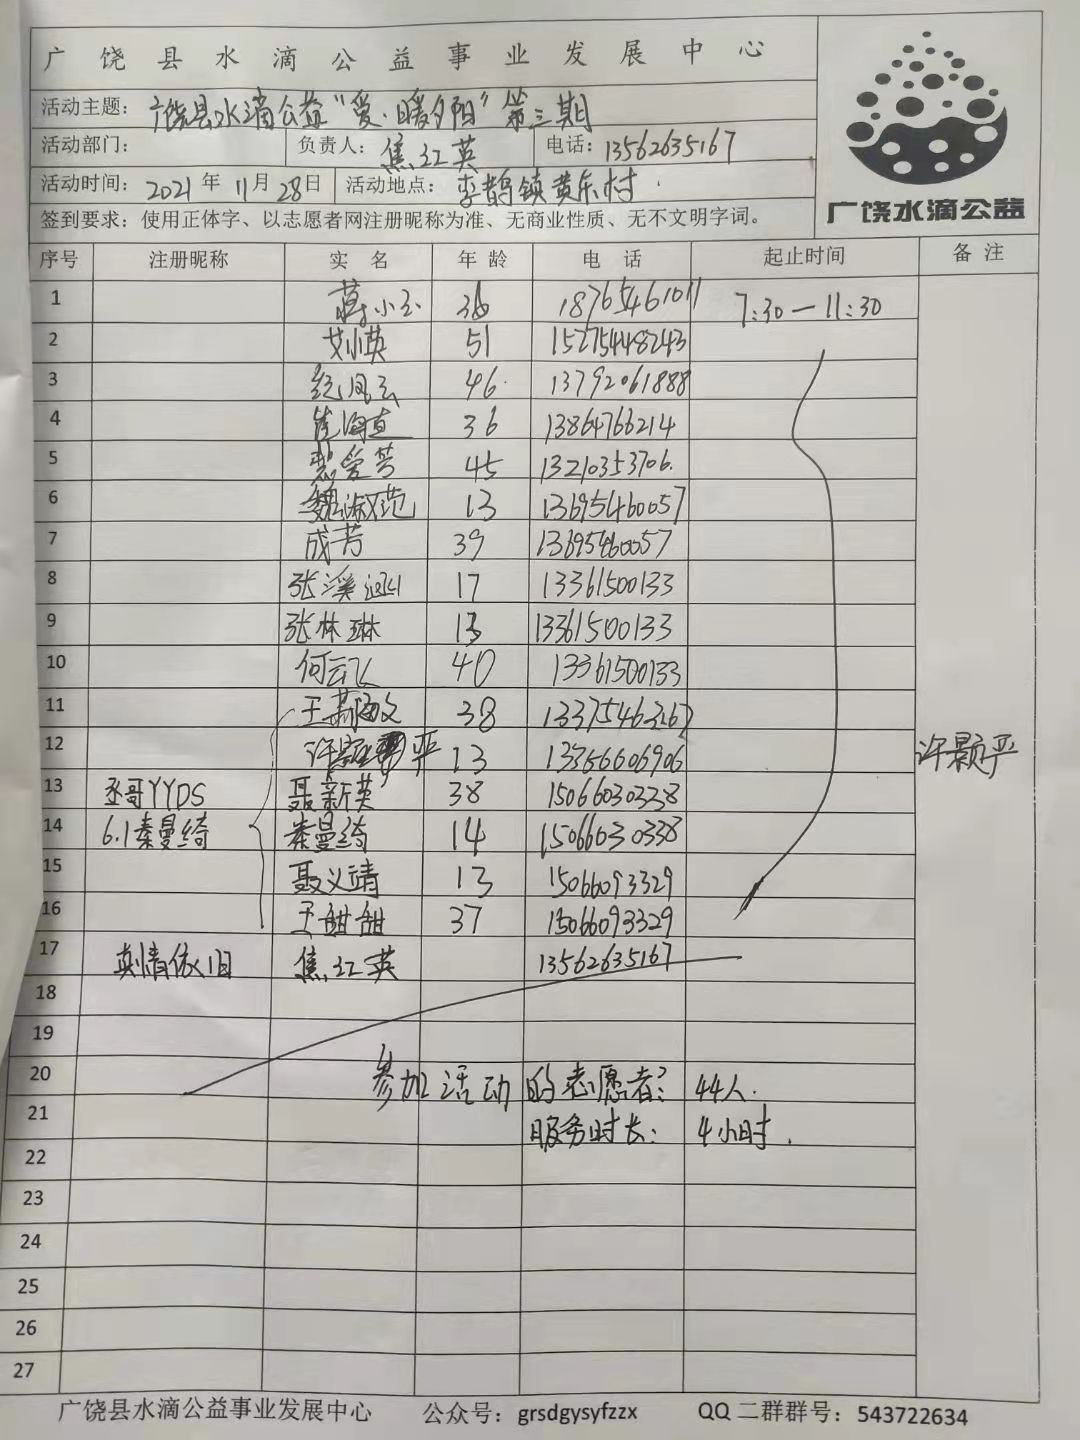 广饶县水滴公益事业发展中心
活动主题：广饶县水滴公益“爱·暖夕阳”第三期
活动部门： 负责人：焦红英 电话：13562635167
活动时间：2021年11月28日 活动地点：李鹊镇黄东村
签到要求：使用正体字、以志愿者网注册昵称为准、无商业性质、无不文明字词。
广饶水滴公益
序号 注册昵称 实名 年龄 电话 起止时间 备注
1 蒋小玉 36 18765461011 7:30—11:30
2 艾小英 51 15275448243
3 纪凤云 46 13792061888
4 崔海直 36 13864766214
5 爱芳 45 13210353706
6 魏淑范 13 13695460057
7 成芳 39 13695460057
8 张溪 17 13361500133
9 张林琳 13 13361500133
10 何云飞 40 13361500133
11 王文 38 13375463267
12 许 严 13 13356606906 许颢严
13 丞哥YYDS 聂新英 38 15066030338
14 6.1秦曼绮 秦曼绮 14 15066030338
15 聂义靖 13 15066093329
16 王甜甜 37 15066093329
17 真情依旧 焦红英 13562635167
18
19
20 参加活动的志愿者：44人.
21 服务时长：4小时.
22
23
24
25
26
27
广饶县水滴公益事业发展中心 公众号：grsdgysyfzzx QQ二群群号：543722634